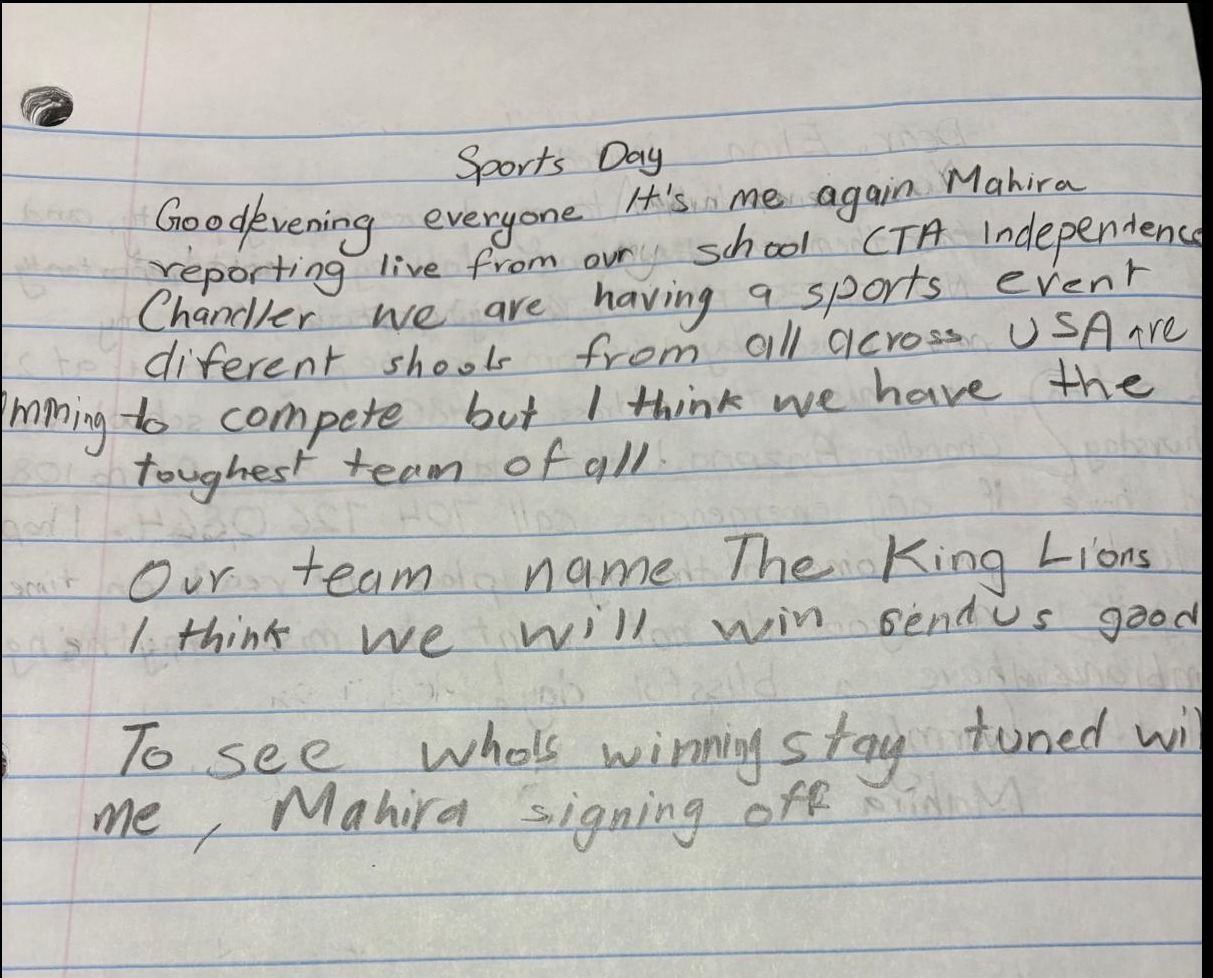 Sports Day
Good/evening everyone It's me again Mahira
reporting live from our school CTA Independence
Chandler we are having a sports event
diferent shools from all across USA are
mming to compete but I think we have the
toughest team of all.
Our team name The King Lions
I think we will win send us good
To see whols winning stay tuned wi
me, Mahira signing off